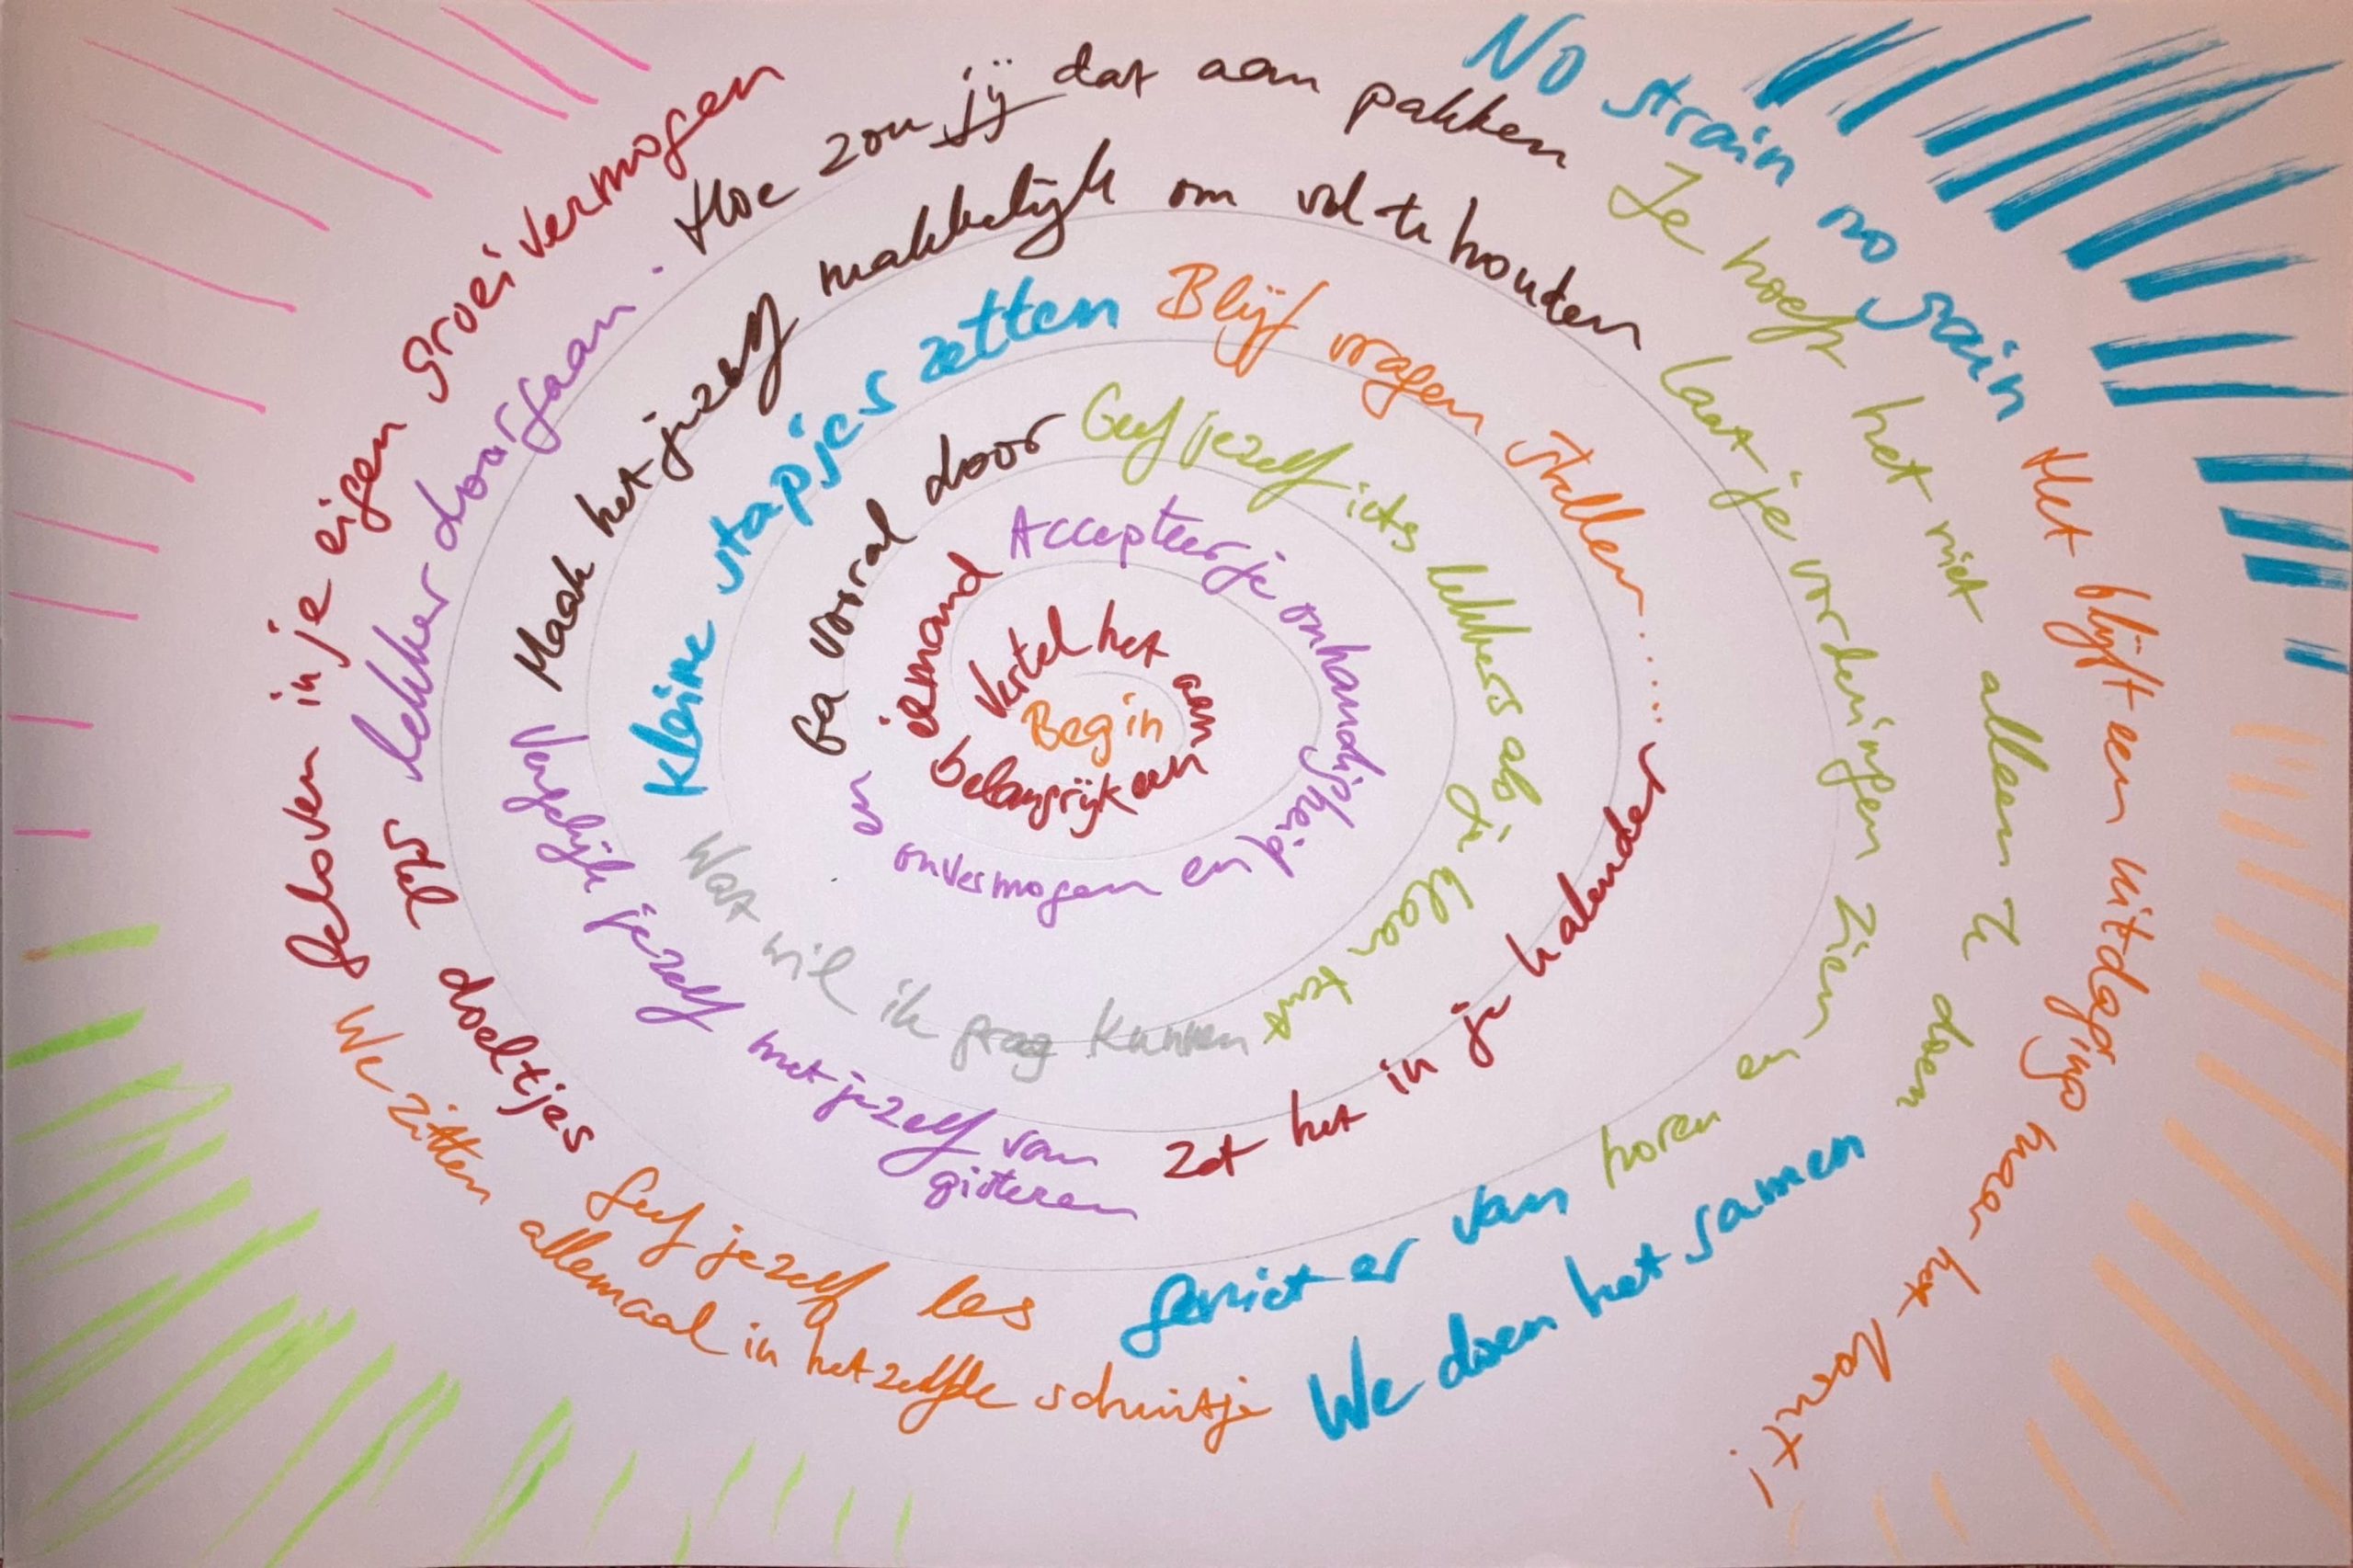 Begin
Vertel het aan een belangrijk iemand
Accepteer je onhandigheid en onvermogen en
Ga vooral door
Geef jezelf iets lekkers als je klaar bent
Wat wil ik graag kunnen
Kleine stapjes zetten
Blijf vragen stellen......
Zet het in je kalender
Vergelijk jezelf met jezelf van gisteren
Maak het jezelf makkelijk om vol te houden
laat je vorderingen zien en horen
geniet er van
Geef jezelf les
stel doeltjes
lekker doorgaan.
Hoe zou jij dat aan pakken
Je hoeft het niet alleen te doen
We doen het samen
We zitten allemaal in hetzelfde schuitje
geloven in je eigen groeivermogen
No strain no gain
Het blijft een uitdaging maar het loont!